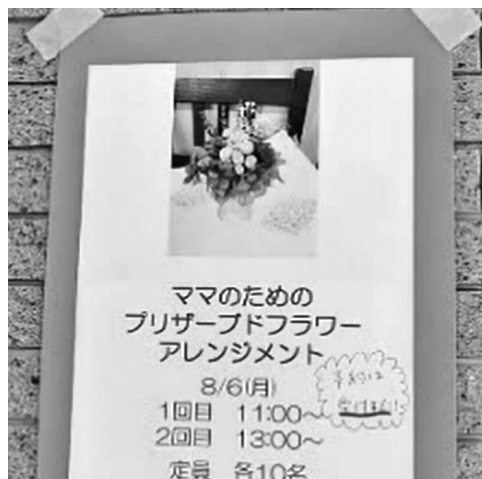 ママのための
プリザーブドフラワー
アレンジメント
8/6(月)
1回目 11:00～
2回目 13:00～
定員 各10名
予約は